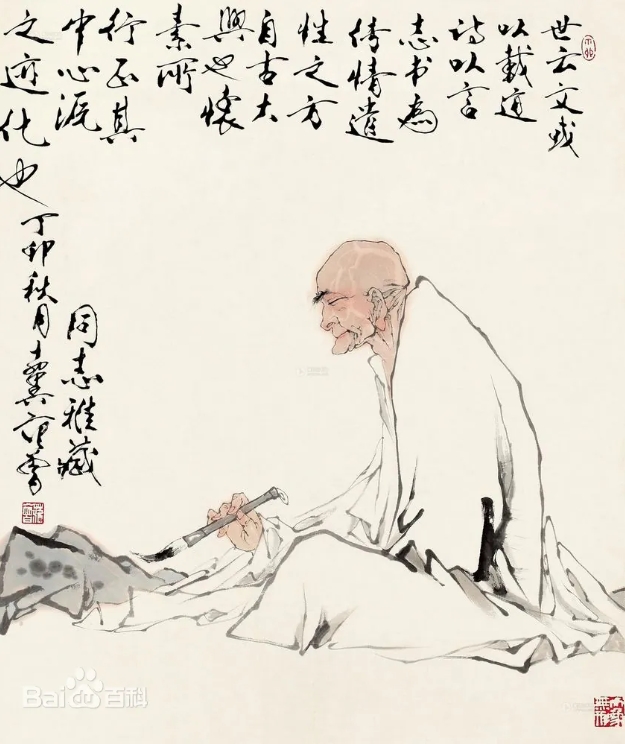 世云文或
以載道
诗以言
志书為
情遣
性之方
自古大
興也懷
素所
行正其
中心源
之迹化
也
丁卯秋月十翼范曾
同志雅藏
Baidu百科